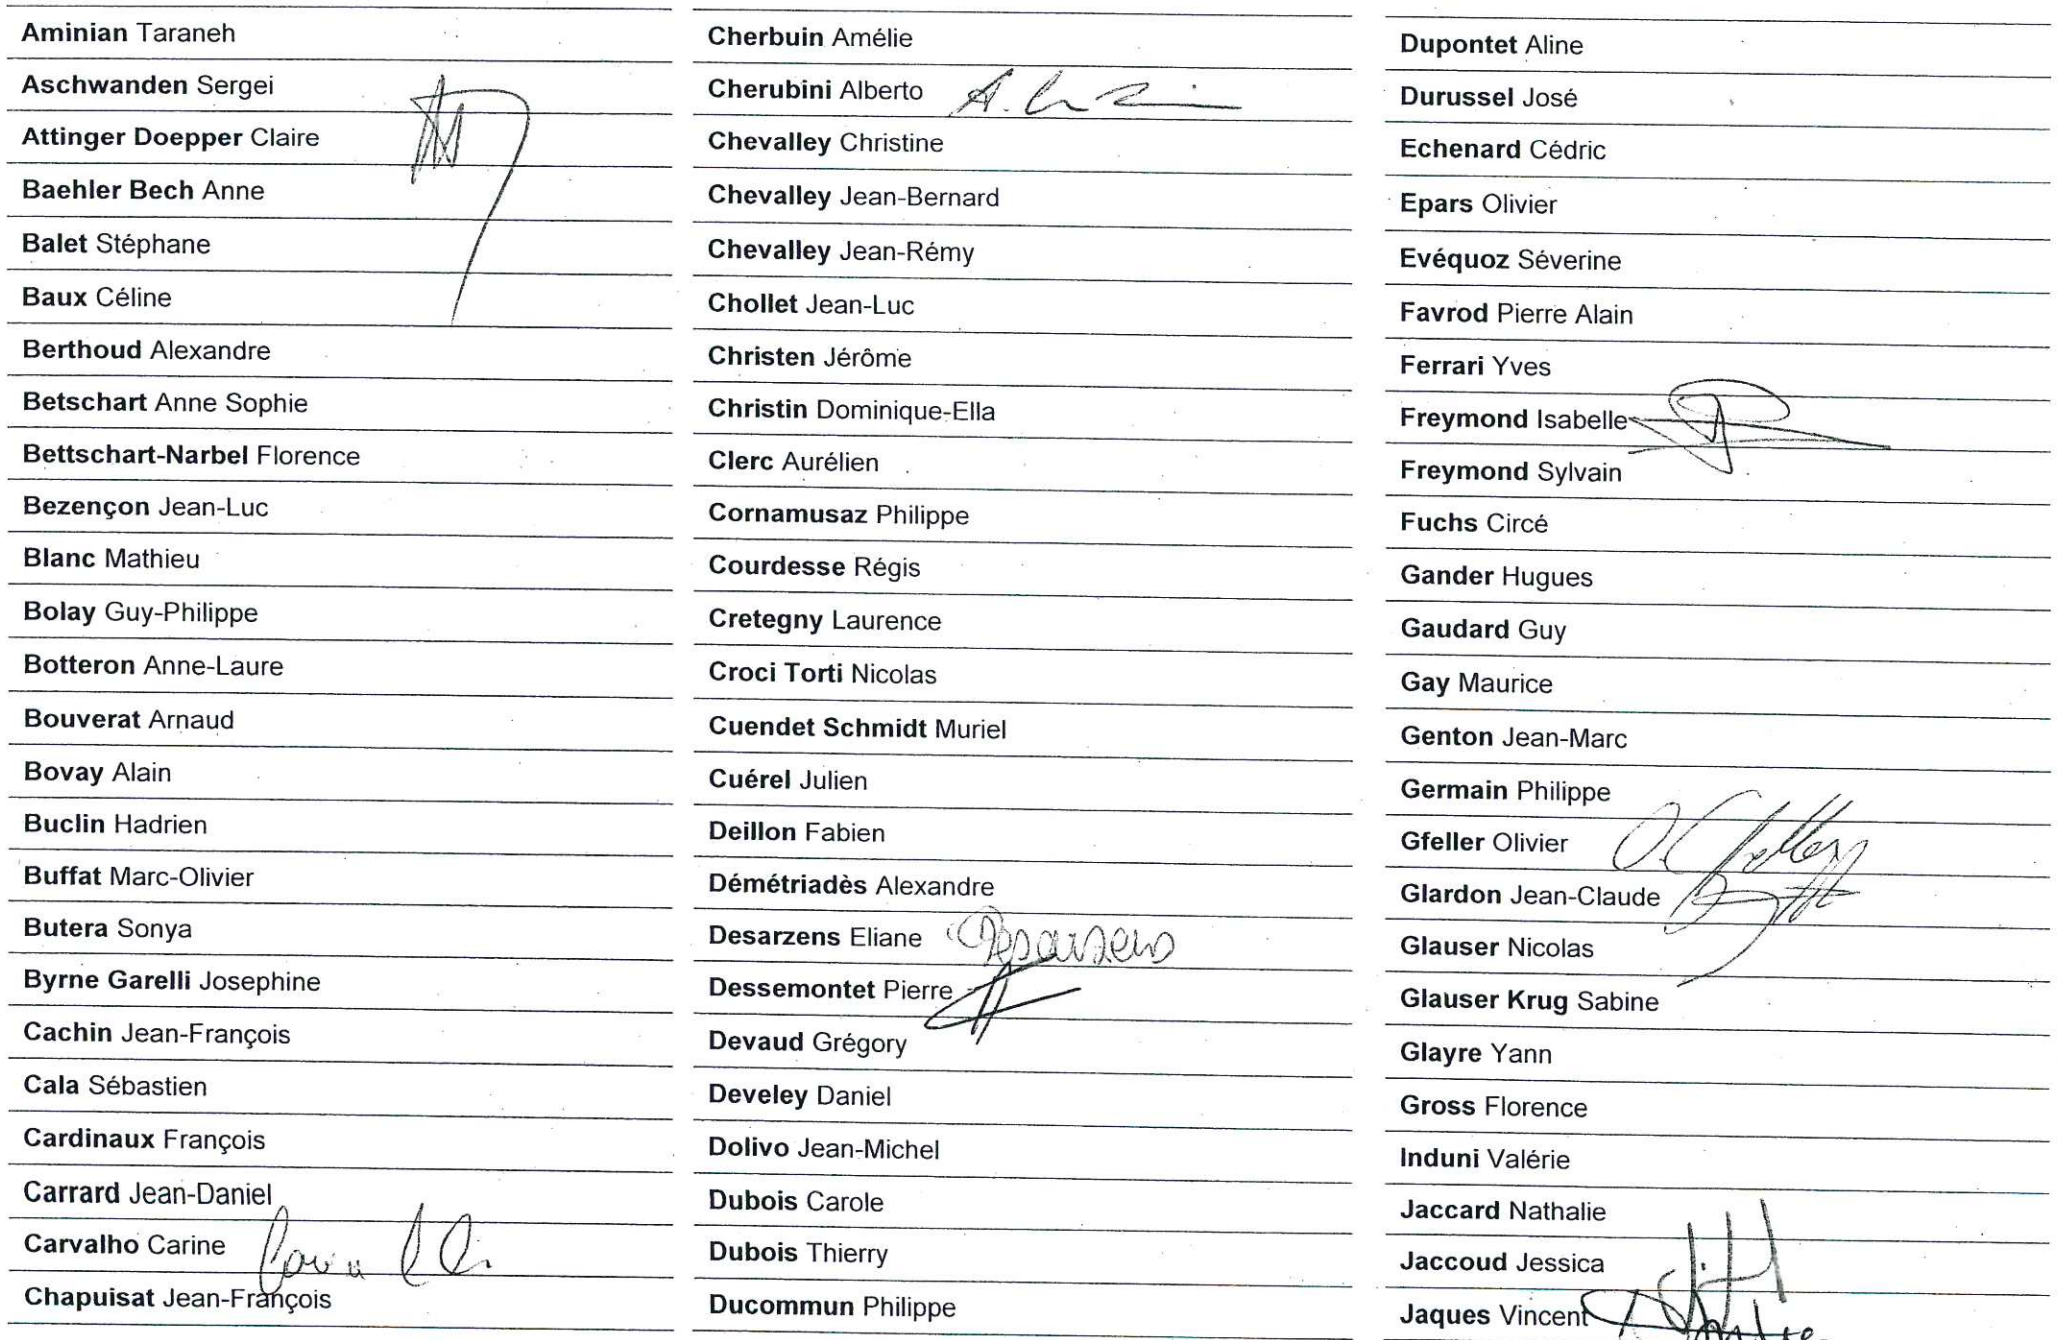 Aminian Taraneh
Aschwanden Sergei
Attinger Doepper Claire
Baehler Bech Anne
Balet Stéphane
Baux Céline
Berthoud Alexandre
Betschart Anne Sophie
Bettschart-Narbel Florence
Bezençon Jean-Luc
Blanc Mathieu
Bolay Guy-Philippe
Botteron Anne-Laure
Bouverat Arnaud
Bovay Alain
Buclin Hadrien
Buffat Marc-Olivier
Butera Sonya
Byrne Garelli Josephine
Cachin Jean-François
Cala Sébastien
Cardinaux François
Carrard Jean-Daniel
Carvalho Carine
Chapuisat Jean-François
Cherbuin Amélie
Cherubini Alberto
Chevalley Christine
Chevalley Jean-Bernard
Chevalley Jean-Rémy
Chollet Jean-Luc
Christen Jérôme
Christin Dominique-Ella
Clerc Aurélien
Cornamusaz Philippe
Courdesse Régis
Cretegny Laurence
Croci Torti Nicolas
Cuendet Schmidt Muriel
Cuérel Julien
Deillon Fabien
Démétriadès Alexandre
Desarzens Eliane Desarzens
Dessemontet Pierre
Devaud Grégory
Develey Daniel
Dolivo Jean-Michel
Dubois Carole
Dubois Thierry
Ducommun Philippe
Dupontet Aline
Durussel José
Echenard Cédric
Epars Olivier
Evéquoz Séverine
Favrod Pierre Alain
Ferrari Yves
Freymond Isabelle
Freymond Sylvain
Fuchs Circé
Gander Hugues
Gaudard Guy
Gay Maurice
Genton Jean-Marc
Germain Philippe
Gfeller Olivier O. Gfeller
Glardon Jean-Claude
Glauser Nicolas
Glauser Krug Sabine
Glayre Yann
Gross Florence
Induni Valérie
Jaccard Nathalie
Jaccoud Jessica
Jaques Vincent